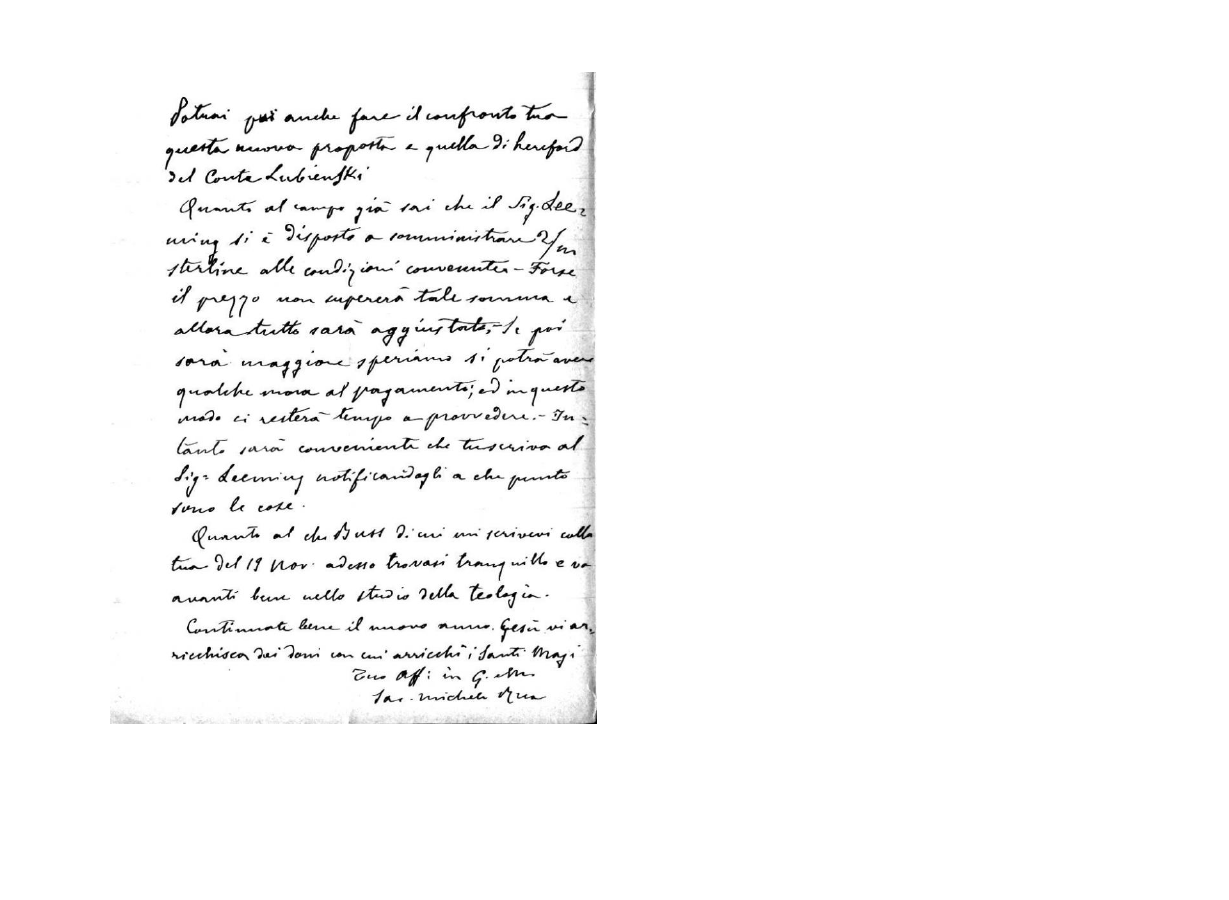 Potrai poi anche fare il confronto tra
questa nuova proposta e quella di hereford
del Conte Lubienski
Quanto al campo già sai che il Sig. Lee=
ming si è disposto a somministrare 2/m
sterline alle condizioni convenute – Forse
il prezzo non supererà tale somma e
allora tutto sarà aggiustato; – Se poi
sarà maggiore speriamo si potrà avere
qualche mora al pagamento; ed in questo
modo ci resterà tempo a provvedere. – In=
tanto sarà conveniente che tu scriva al
Sig= Leeming notificandogli a che punto
sono le cose.
Quanto al ch. Buss di cui mi scrivevi colla
tua del 19 Nov. adesso trovasi tranquillo e va
avanti bene nello studio della teologia.
Continuate bene il nuovo anno. Gesù vi ar=
ricchisca dei doni con cui arricchì i Santi Magi
Tuo Aff: in G. e M.
Sac. Michele Rua